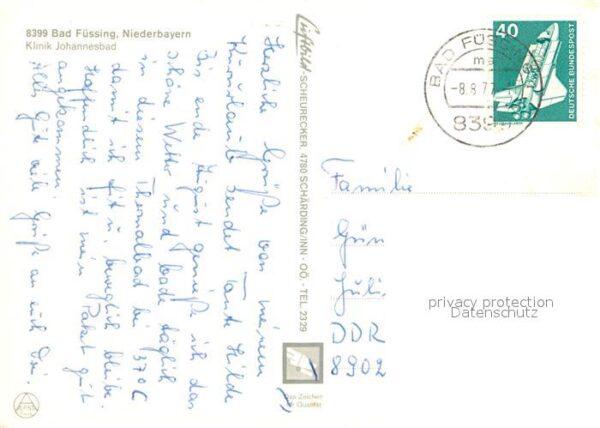 8399 Bad Füssing, Niederbayern
Klinik Johannesbad
Herzliche Grüße von meinem
Kururlaub sendet Tante Hilde
Bis ende August genieße ich das
schöne Wetter und bade täglich
in diesem Thermalbad bei 37°C
damit ich fit u. beweglich bleibe.
Hoffentlich ist mein Paket gut
angekommen!
Alles Gute viele Grüße an euch Drei.
Luftbild SCHEURECKER, 4780 SCHÄRDING/INN - OÖ. - TEL. 2329
Das Zeichen
für Qualität
BAD FÜSSING
-8.8.77
839
40
DEUTSCHE BUNDESPOST
Familie
Gün
Juli
DDR
8902
privacy protection
Datenschutz